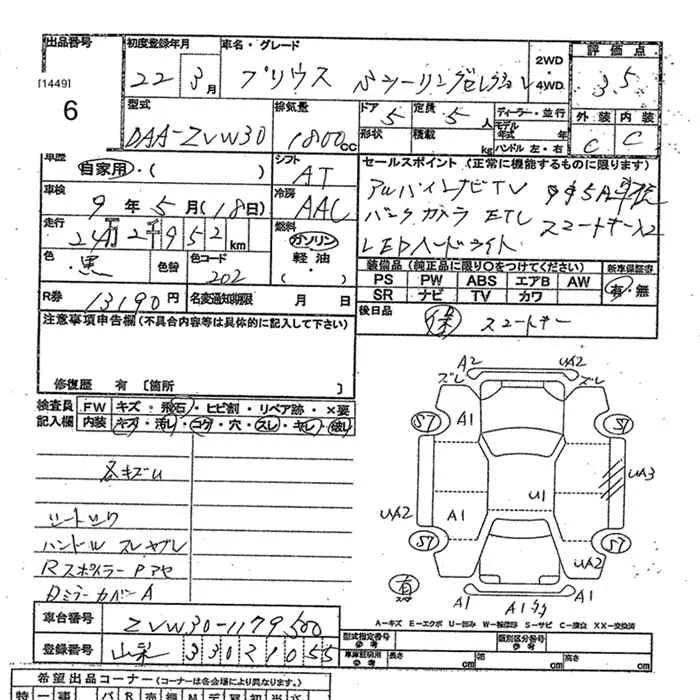 出品番号 初度登録年月 車名・グレード 2WD・4WD 評価点
[1449] 22年 3月 プリウス Sツーリングセレクション 3.5
6
型式 排気量 ドア 定員 ディーラー・並行 外装 内装
DAA-ZVW30 1800cc 5 5人 モデル年式 年 C C
形状 積載 kg ハンドル 左・右
車歴 自家用・( ) シフト AT セールスポイント (正常に機能するものに限ります)
車検 9年 5月(18日) 冷房 AAC アルパインナビTV
バックカメラ ETC スマートキーx2
走行 km 燃料 ガソリン・軽油・( ) LEDヘッドライト
色 黒 色替 色コード 202 装備品 (純正品に限り○をつけてください) 新車保証書
PS PW ABS エアB AW 有・無
SR ナビ TV カワ
R券 13190円 名変通知期限 月 日 後日品 保 スマートキー
注意事項申告欄(不具合内容等は具体的に記入して下さい)
修復歴 有〔箇所 〕
検査員 FW キズ・飛石・ヒビ割・リペア跡・×要
記入欄 内装 キズ・汚レ・コゲ・穴・スレ・キレ・破レ
各キズU
シートコゲ
ハンドル スレヤブレ
Rスポイラー Pアセ
Dミラーカバー A
A2 UA2
ズレ ズレ
57 A1 57
UA3
U1
UA2 A1
57 57
UA2
有 スペア A1 A1 A1
A-キズ E-エクボ U-凹み W-補修跡 S-サビ C-腐食 XX-交換済
車台番号 ZVW30-1179500
登録番号 山梨 330 ス 1055
型式指定番号 参考 類別区分番号 参考
車庫証明用 参考 長さ cm 巾 cm 高さ cm
希望出品コーナー (コーナーは各会場により異なります。)